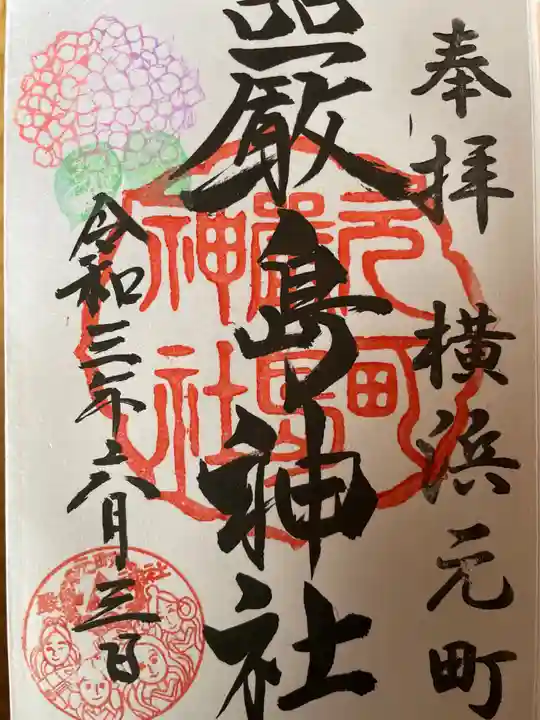 奉拝 横浜元町
厳島神社
令和三年六月三日
元町
厳島
神社